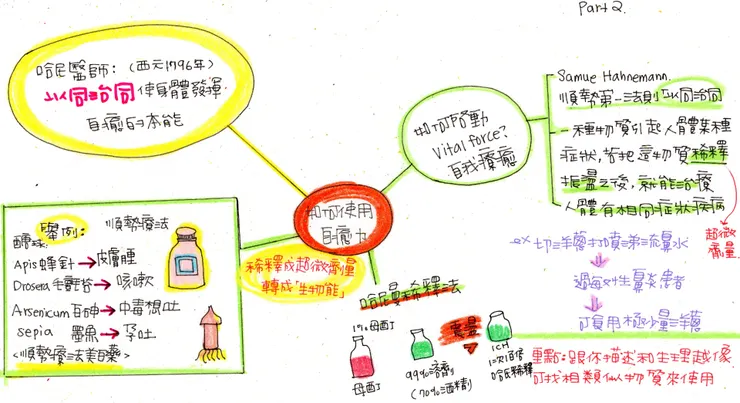 Part 2.
哈尼醫師：（西元1796年）
以同治同 使身體發揮
自癒的本能
如何啟動
Vital force?
自我療癒
Samue Hahnemann.
順勢第一法則 以同治同
一種物質引起人體某種
症狀，若把這物質稀釋
振盪之後，就能治療
人體有相同症狀疾病
超微
劑量
如何使用
自癒力
稀釋成超微劑量
轉成「生物能」
舉例： 順勢療法
Apis 蜂針→皮膚腫
Drosera 毛氈苔→咳嗽
Arsenicum 百砷→中毒想吐
sepia 墨魚→孕吐
<順勢療法美百藥>
哈尼曼稀釋法
1% 母酊
母酊
99% 溶劑
(70% 酒精)
震盪
1CH
1次百倍
哈氏稀釋
ex 切洋蔥打噴涕流鼻水
過敏性鼻炎患者
可食用極少量洋蔥
重點：跟你描述和生理越像
可找相類似物質來使用